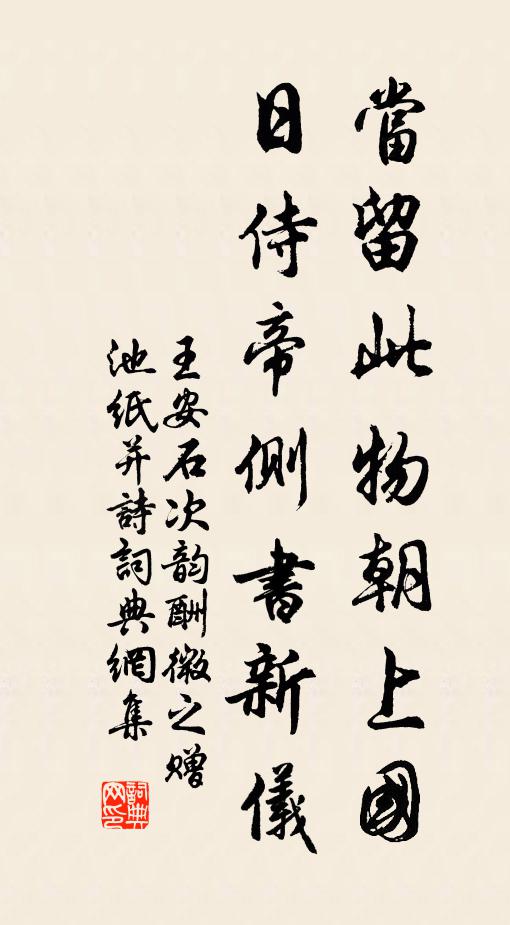 當留此物朝上國
日侍帝側書新儀
王安石次韵酬微之赠
池紙并詩詞典網集
詞典
网印